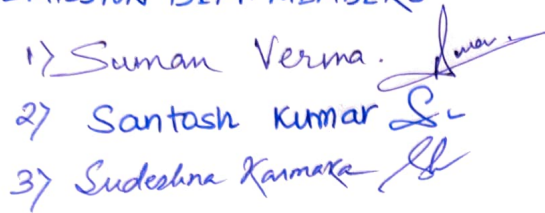 1) Suman Verma.
2) Santosh Kumar
3) Sudeshna Karmaka